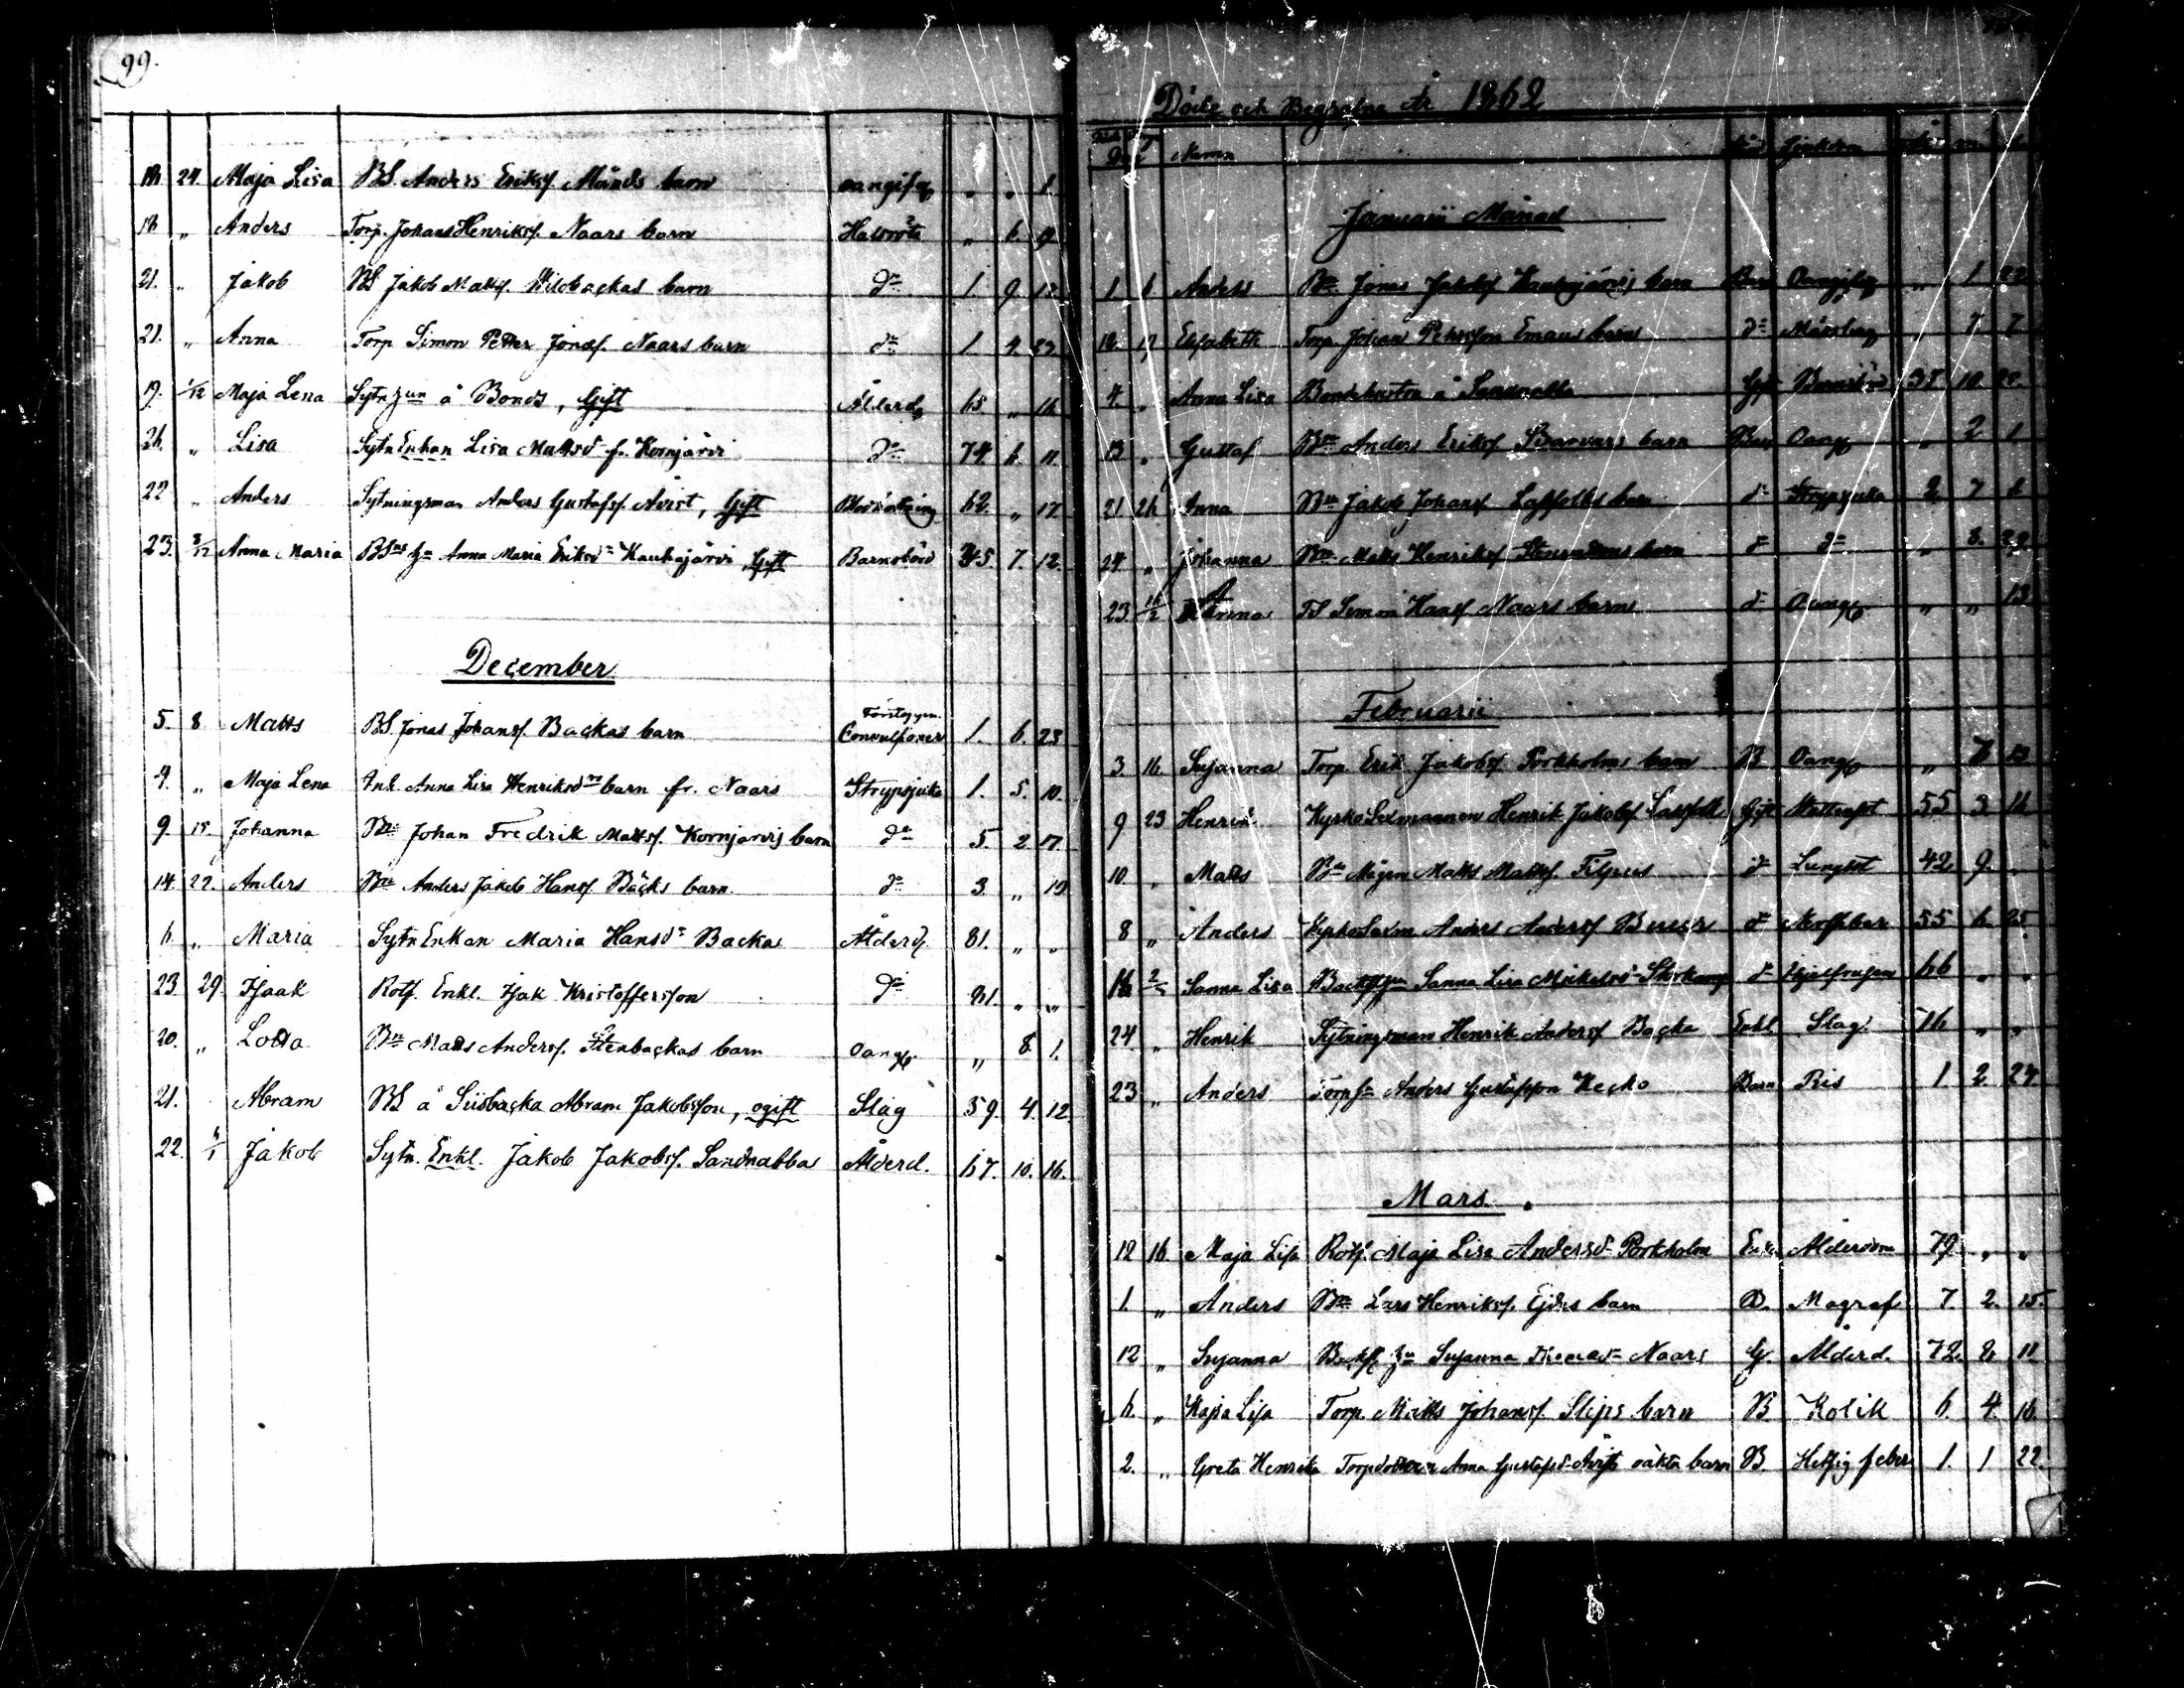 99.
18 24 Maja Lisa BS. Anders Eriksf. Månds barn oangifv " " 1.
18 " Anders Torp. Johans Henriksf. Naars barn Halsröta " 6. 9
21. " Jakob BS Jakob Mattsf. barn do 1. 9 13
21. " Anna Torp Simon Petter Jonasf. Naars barn do 1. 4. 23
19. 1/12 Maja Lena Sytn å Bonds, Gift Ålderd. 65 " 16
26. " Lisa Sytn Enkan Lisa Mattsd fr. Kornjärvi do 74. 6. 11.
22 " Anders Sytningsman Anders Gustafsf. Åvist, Gift 62. " 17.
23. 8/12 Anna Maria Anna Maria Eriksd Kauhajärvi, Gift Barnsbörd 35. 7. 12.
December
5. 8 Matts BS. Jonas Johansf. Backas barn Convulsioner 1. 6. 23
9. " Maja Lena Inh. Anna Lisa Henriksd barn fr. Naars Strypsjuka 1. 5. 10.
9. 15. Johanna Bn Johan Fredrik Mattsf. Kornjarvis barn do 5 2 17
14. 22. Anders Bn Anders Jakob Hansf. Bäcks barn do 3. " 19
6. " Maria Sytn Enkan Maria Hansd Backa Ålderd. 81. " "
23 29. Isaak Rotf. Enkl. Isak Kristoffersson do 81. " "
20. " Lotta Bn Matts Andersf. Stenbackas barn oangf " 8. 1.
21. Abram BS å Siisbacka Abram Jakobsson, ogift Slag 59. 4. 12.
22. 6/1 Jakob Sytn. Enkl. Jakob Jakobsf. Sandnabba Ålderd. 67. 10. 16.
Döde och Begrafne År 1862
Namn Sjukdom
Januarii Månad
1 6 Anders Bn Jonas Jakobsf Kauhajärvis barn Barn Oangifv " 1 22
12. 19 Elisabeth Torp Johan Petersson Emaus barn do Mässling " 7 7
4. " Anna Lisa Bondehustru å Sandnabba Gift Barnsbörd 38 10. 20.
13 " Gustaf Bn Anders Eriksf barn Barn Oangf " 2 1
21 26 Anna Bn Jakob Johansf Lassfolks barn do Strypsjuka 2 7 6
24 " Johanna Bn Matts Henriksf barn do do " 8. 29
23 16/2 Anna TS Simon Hansf Naars barn do Oangf " " 13
Februarii
3 16 Susanna Torp. Erik Jakobsf. Porkholms barn B Oangf " 7 13
9 23 Henrik Kyrko Sexmannen Henrik Jakobsf. Lassfolk Gift Wattusot 55 3. 16
10. " Matts Bn Mågen Matts Mattsf. Filpus do Lungsot 42 9. "
8 " Anders Kyrko Sexm Anders Andersf do 55 6. 25.
16 2/3 Sanna Lisa Sanna Lisa Mickelsd Storkamp do 66 " "
24 " Henrik Sytningsman Henrik Andersf Backa Enkl Slag 76 " "
23 " Anders Torp Anders Gustafsson Kecko Barn Ris 1 2 24
Mars.
12 16 Maja Lisa Rotf. Maja Lisa Andersd Porkholm Enka Ålderdom 79 " "
1. " Anders Bn Lars Henriksf. barn B. Magref 7. 2. 15.
12 " Susanna Susanna Naars G. Ålderd. 72. 8. 11
6. " Kajsa Lisa Torp. Matts Johansf. Slips barn B Kolik 6. 4. 16.
2. " Greta Henrika Torpdottern Anna Gustafsd Åvists oäkta barn B Hetsig feber 1. 1 22.